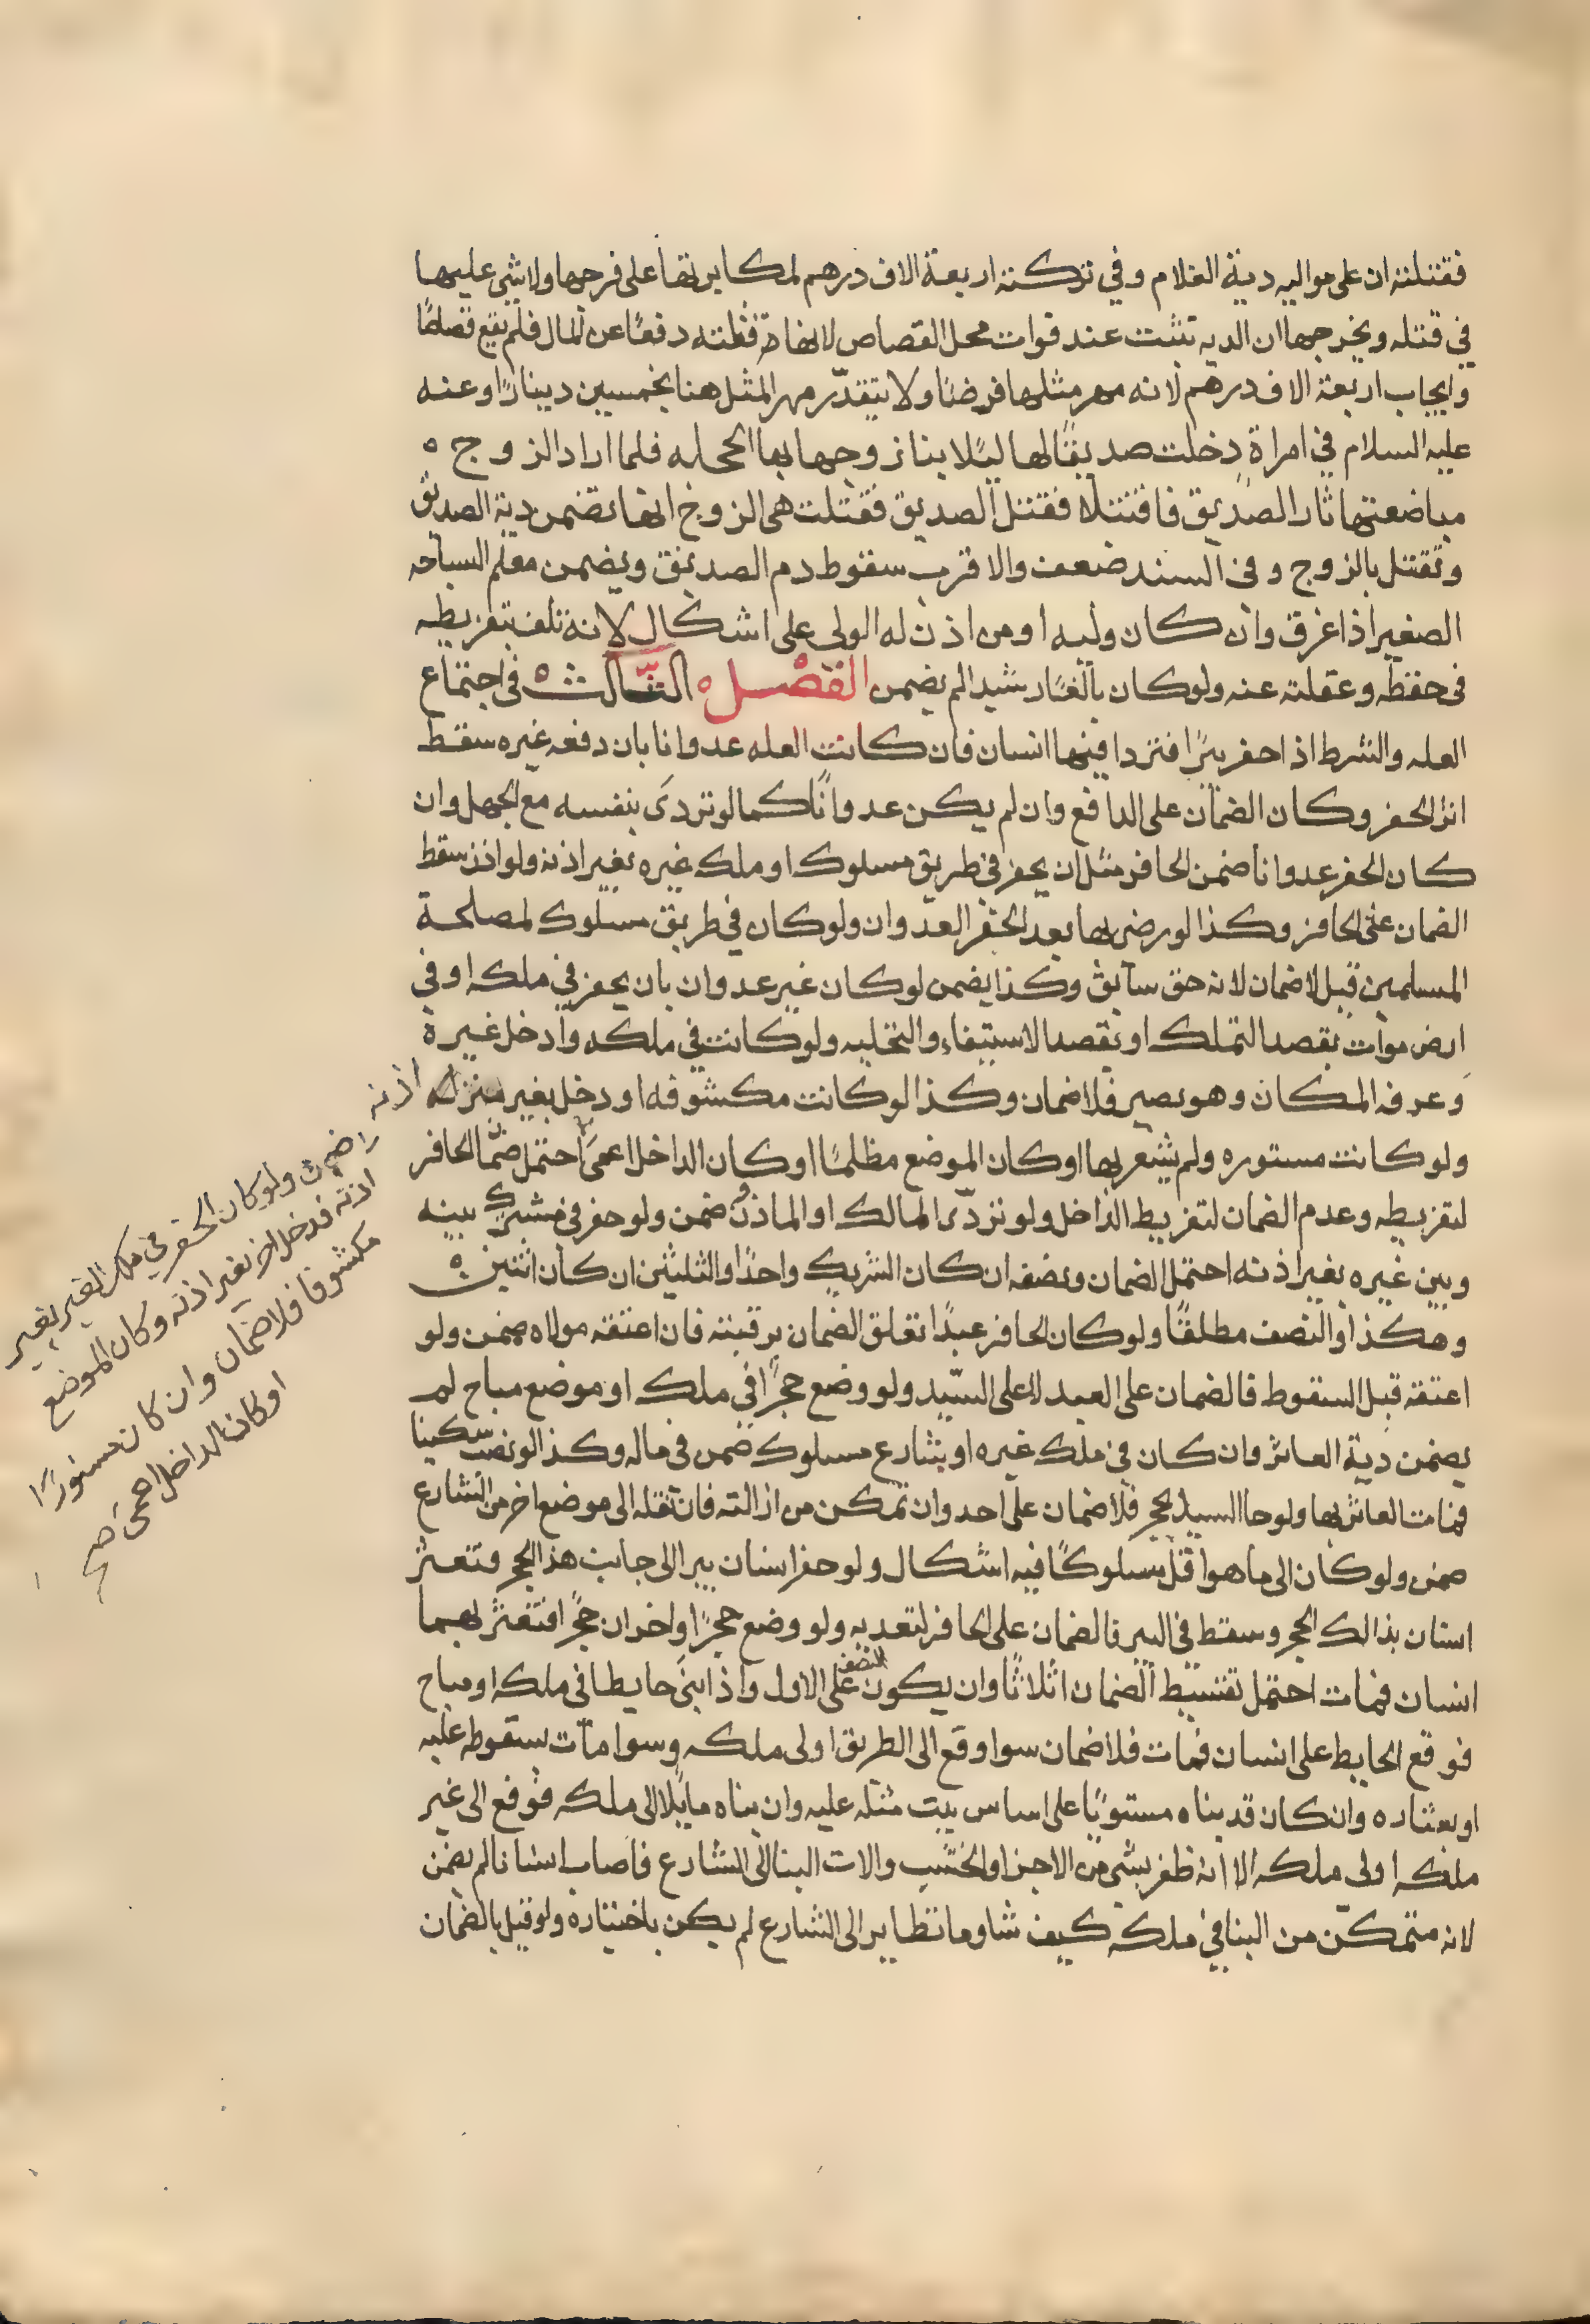 فقتلته ان على مواليه دية الغلام وفي تركته اربعة الاف درهم لمكابرتها على فرجها ولا شي عليها
في قتله ويخرجها ان الديه تثبت عند فوات محل القصاص لانها قتلته دفعًا عن المال فلم يقع قصاصًا
وايجاب اربعة الاف درهم لانه مهر مثلها فرضنا ولا يتقدّر مهر المثل هنا بخمسين دينارًا وعنه
عليه السلام في امراة دخلت صديقًا لها ليلا بنا زوجها بها الحجله فلما اراد الزوج
مباضعتها ثار الصديق فاقتتلا فقتل الصديق فقتلت هى الزوج انها تضمن دية الصديق
وتقتل بالزوج وفى السند ضعف والاقرب سقوط دم الصديق ويضمن معلم السباحه
الصغير اذا غرق وان كان وليه او من اذن له الولى على اشكال لانه تلف بتفريطه
فى حفظه وغفلته عنه ولو كان بالغًا رشيدا لم يضمن الفصل الثالث فى اجتماع
العله والشرط اذا حفر بئرًا فتردا فيها انسان فان كانت العله عدوانا بان دفعه غيره سقط
اثر الحفر وكان الضمان على الدافع وان لم يكن عدوانًا كما لو تردى بنفسه مع الجهل وان
كان الحفر عدوانا ضمن الحافر مثل ان يحفر فى طريق مسلوك او ملك غيره بغير اذنه ولو اذن سقط
الضمان عن الحافر وكذا لو رضى بها بعد الحفر العدوان ولو كان في طريق مسلوك لمصلحة
المسلمين قيل لا ضمان لانه حق سابق وكذا يضمن لو كان غير عدوان بان يحفر في ملكه او في
ارض موات بقصد التملك او بقصد الاستيفاء والتخليه ولو كانت في ملكه وادخل غيره
وعرفه المكان وهو بصير فلا ضمان وكذا لو كانت مكشوفه او دخل بغير منزله اذنه
ولو كانت مستوره ولم يشعر بها او كان الموضع مظلمًا او كان الداخل اعمى احتمل ضمان الحافر
لتفريطه وعدم الضمان لتفريط الداخل ولو تردّى المالك او الماذون ضمن ولو حفر فى مشترك بينه
وبين غيره بغير اذنه احتمل الضمان ونصفه ان كان الشريك واحدًا والثلثين ان كان اثنين
وهكذا او النصف مطلقًا ولو كان الحافر عبدًا تعلق الضمان برقبته فان اعتقه مولاه ضمن ولو
اعتقه قبل السقوط فالضمان على العبد لا على السيّد ولو وضع حجرًا في ملكه او موضع مباح لم
يضمن دية العاثر وان كان في ملك غيره او بشارع مسلوك ضمن فى ماله وكذا لو نصب سكينا
فمات العاثر بها ولو جا السيل بحجر فلا ضمان على احد وان تمكن من ازالته فان نقله الى موضع اخر من الشارع
ضمن ولو كان الى ما هو اقل سلوكًا فيه اشكال ولو حفر انسان بيرا الى جانب هذا الحجر فتعثر
انسان بذالك الحجر وسقط فى البير فالضمان على الحافر لتعديه ولو وضع حجرًا واخران حجرًا فتعثر بهما
انسان فمات احتمل تقسيط الضمان اثلاثًا وان يكون النصف على الاول واذا بنى حايطا فى ملكه او مباح
فوقع الحايط على انسان فمات فلا ضمان سوا وقع الى الطريق او لى ملكه وسوا مات بسقوطه عليه
او بعثاره وان كان قد بناه مستويًا على اساس يثبت مثله عليه وان بناه مايلا الى ملكه فوقع الى غير
ملكه او لى ملكه الا انه طفر بشى من الاجر او الخشب والات البنا الى الشارع فاصاب انسانا لم يضمن
لانه متمكن من البنا في ملكه كيف شا وما تطاير الى الشارع لم يكن باختياره ولو قيل بالضمان
ضمن ولو كان الحفر في ملك الغير بغير
اذنه فدخل اخر بغير اذنه وكان الموضع
مكشوفا فلا ضمان وان كان مستورًا
او كان الداخل اعمى صح